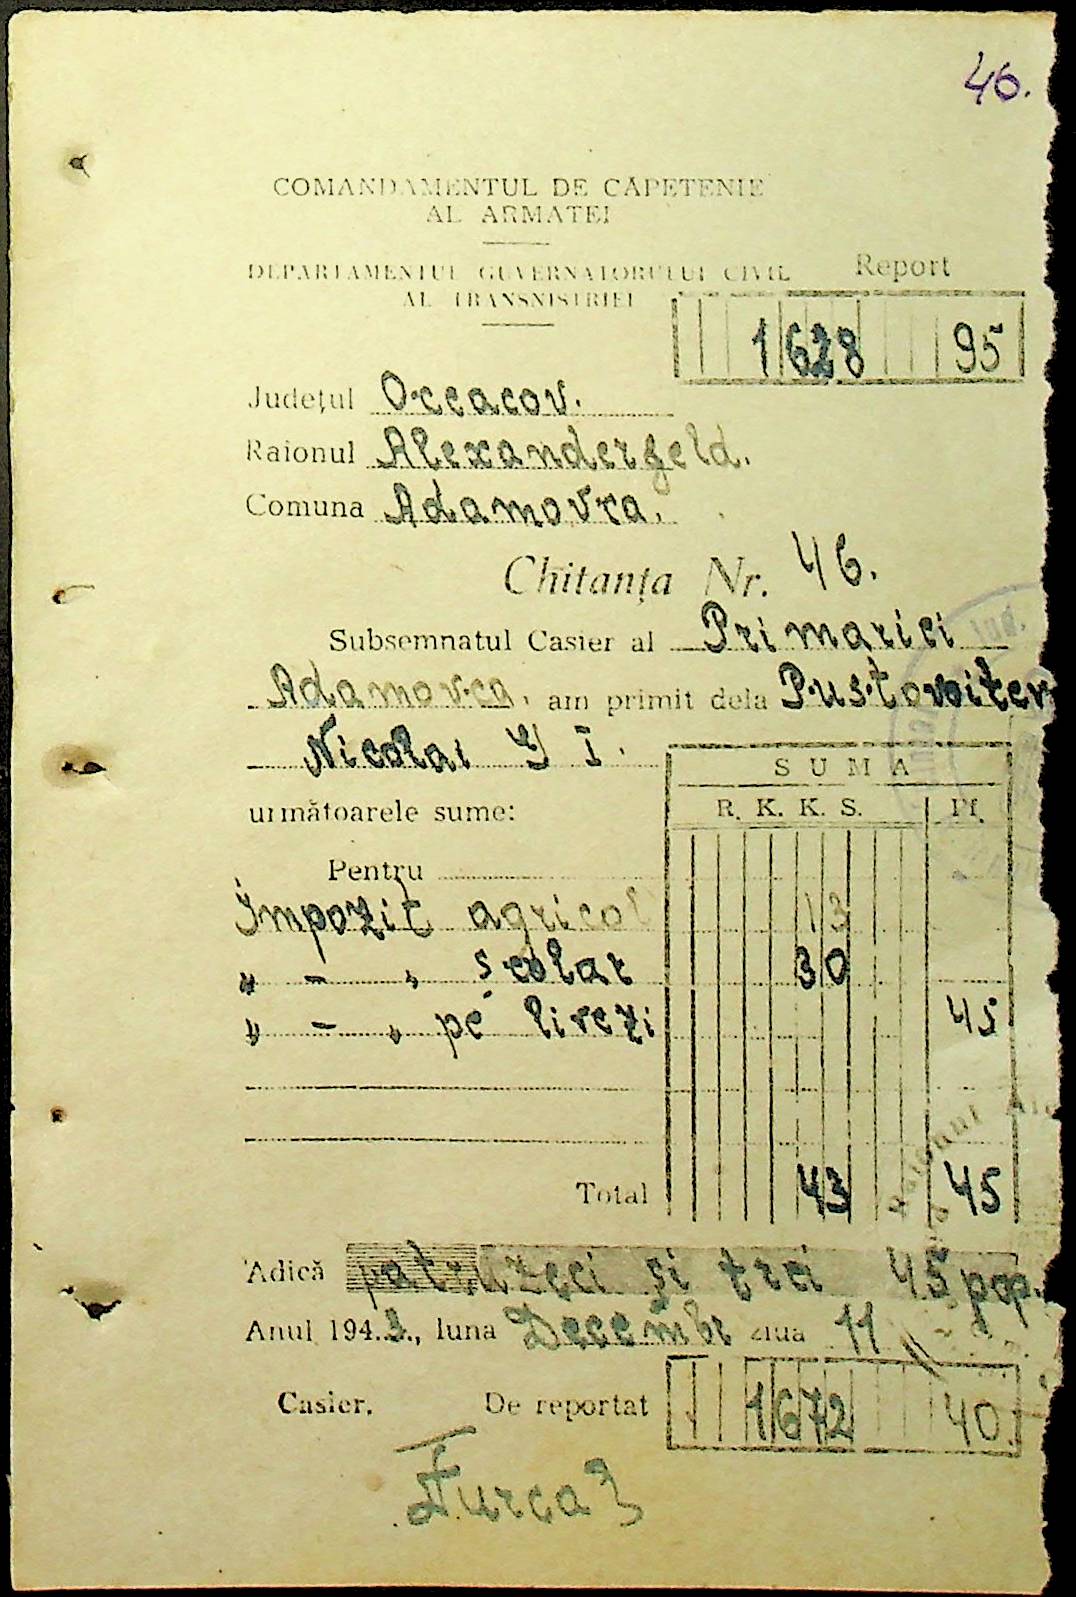 46.
COMANDAMENTUL DE CĂPETENIE
AL ARMATEI
DEPARTAMENTUL GUVERNATORULUI CIVIL
AL TRANSNISTRIEI
Report
1628 95
Județul Oceacov.
Raionul Alexanderfeld.
Comuna Adamovca.
Chitanța Nr. 46.
Subsemnatul Casier al Primariei
Adamovca, am primit dela Pustovoiten
Nicolai I.
SUMA
următoarele sume:
R. K. K. S. Pf.
Pentru
Impozit agricol 13
„ - „ școlar 30
„ - „ pe livezi 45
Total 43 45
Adică patruzeci și trei 45 pop.
Anul 1943., luna Decembr ziua 11
Casier. De reportat 1672 40.
Raionul